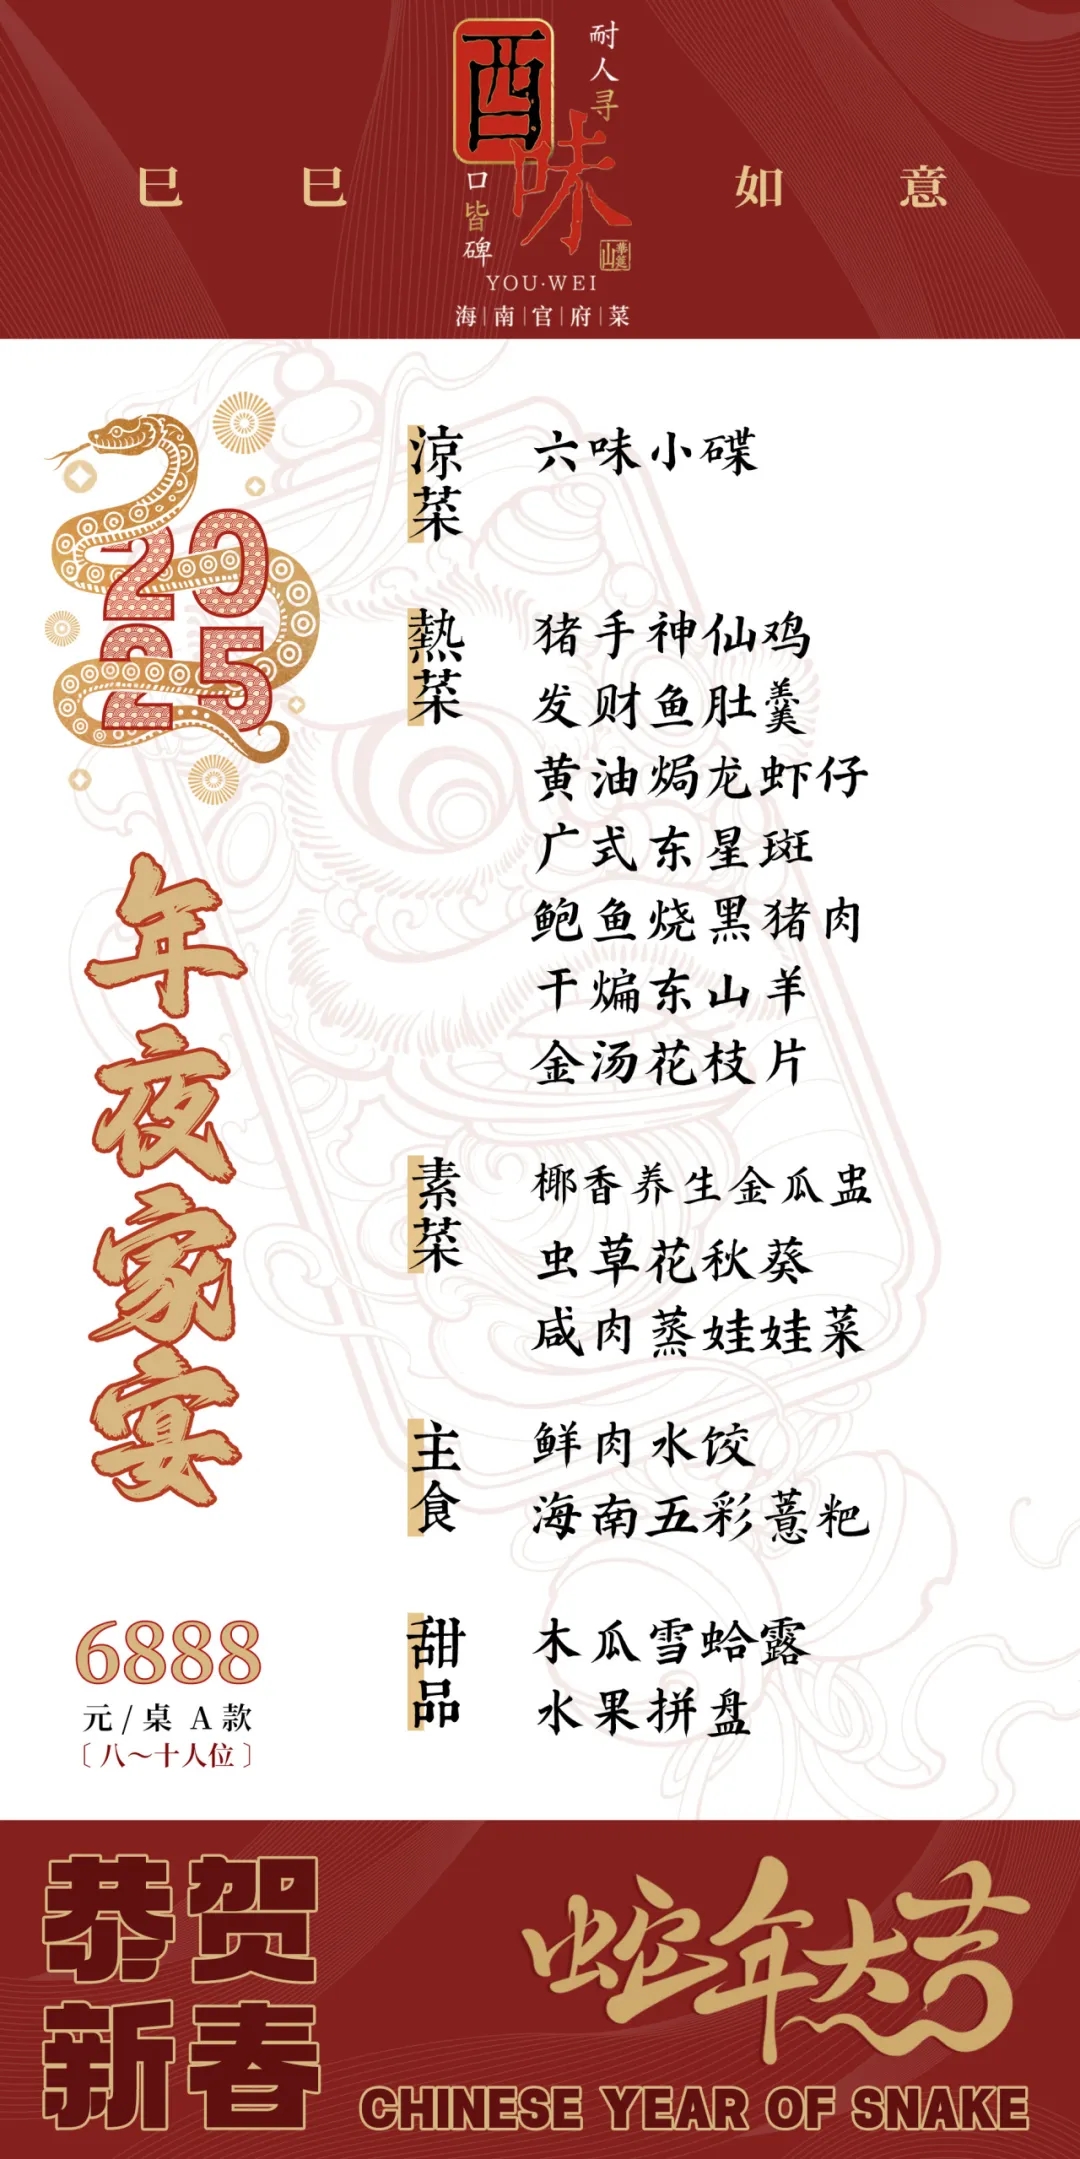 巳巳如意
耐人寻
酉味
口皆碑
華莚山
YOU·WEI
海|南|官|府|菜
2025
年夜家宴
6888
元/桌 A款
〔八～十人位〕
涼菜
六味小碟
熱菜
猪手神仙鸡
发财鱼肚羹
黄油焗龙虾仔
广式东星斑
鲍鱼烧黑猪肉
干煸东山羊
金汤花枝片
素菜
椰香养生金瓜盅
虫草花秋葵
咸肉蒸娃娃菜
主食
鲜肉水饺
海南五彩薏粑
甜品
木瓜雪蛤露
水果拼盘
恭贺
新春
蛇年大吉
CHINESE YEAR OF SNAKE